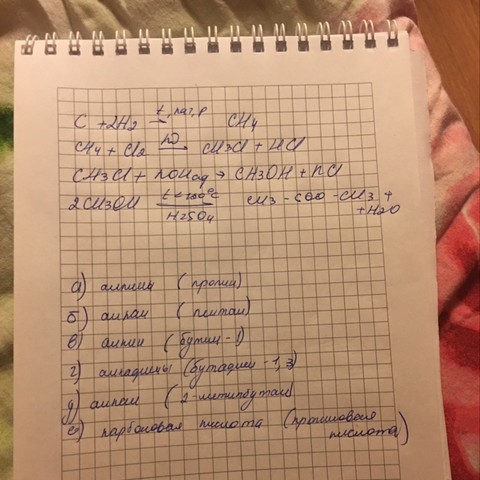 C + 2H2 t, кат, p → CH4
CH4 + Cl2 hν → CH3Cl + HCl
CH3Cl + KOH aq → CH3OH + KCl
2CH3OH t<140°C H2SO4 → CH3 - COO - CH3 +
+ H2O
а) алкины (пропин)
б) алкан (пентан)
в) алкин (бутин-1)
г) алкадиены (бутадиен-1,3)
д) алкан (2-метилбутан)
е) карбоновая кислота (пропиловая
кислота)